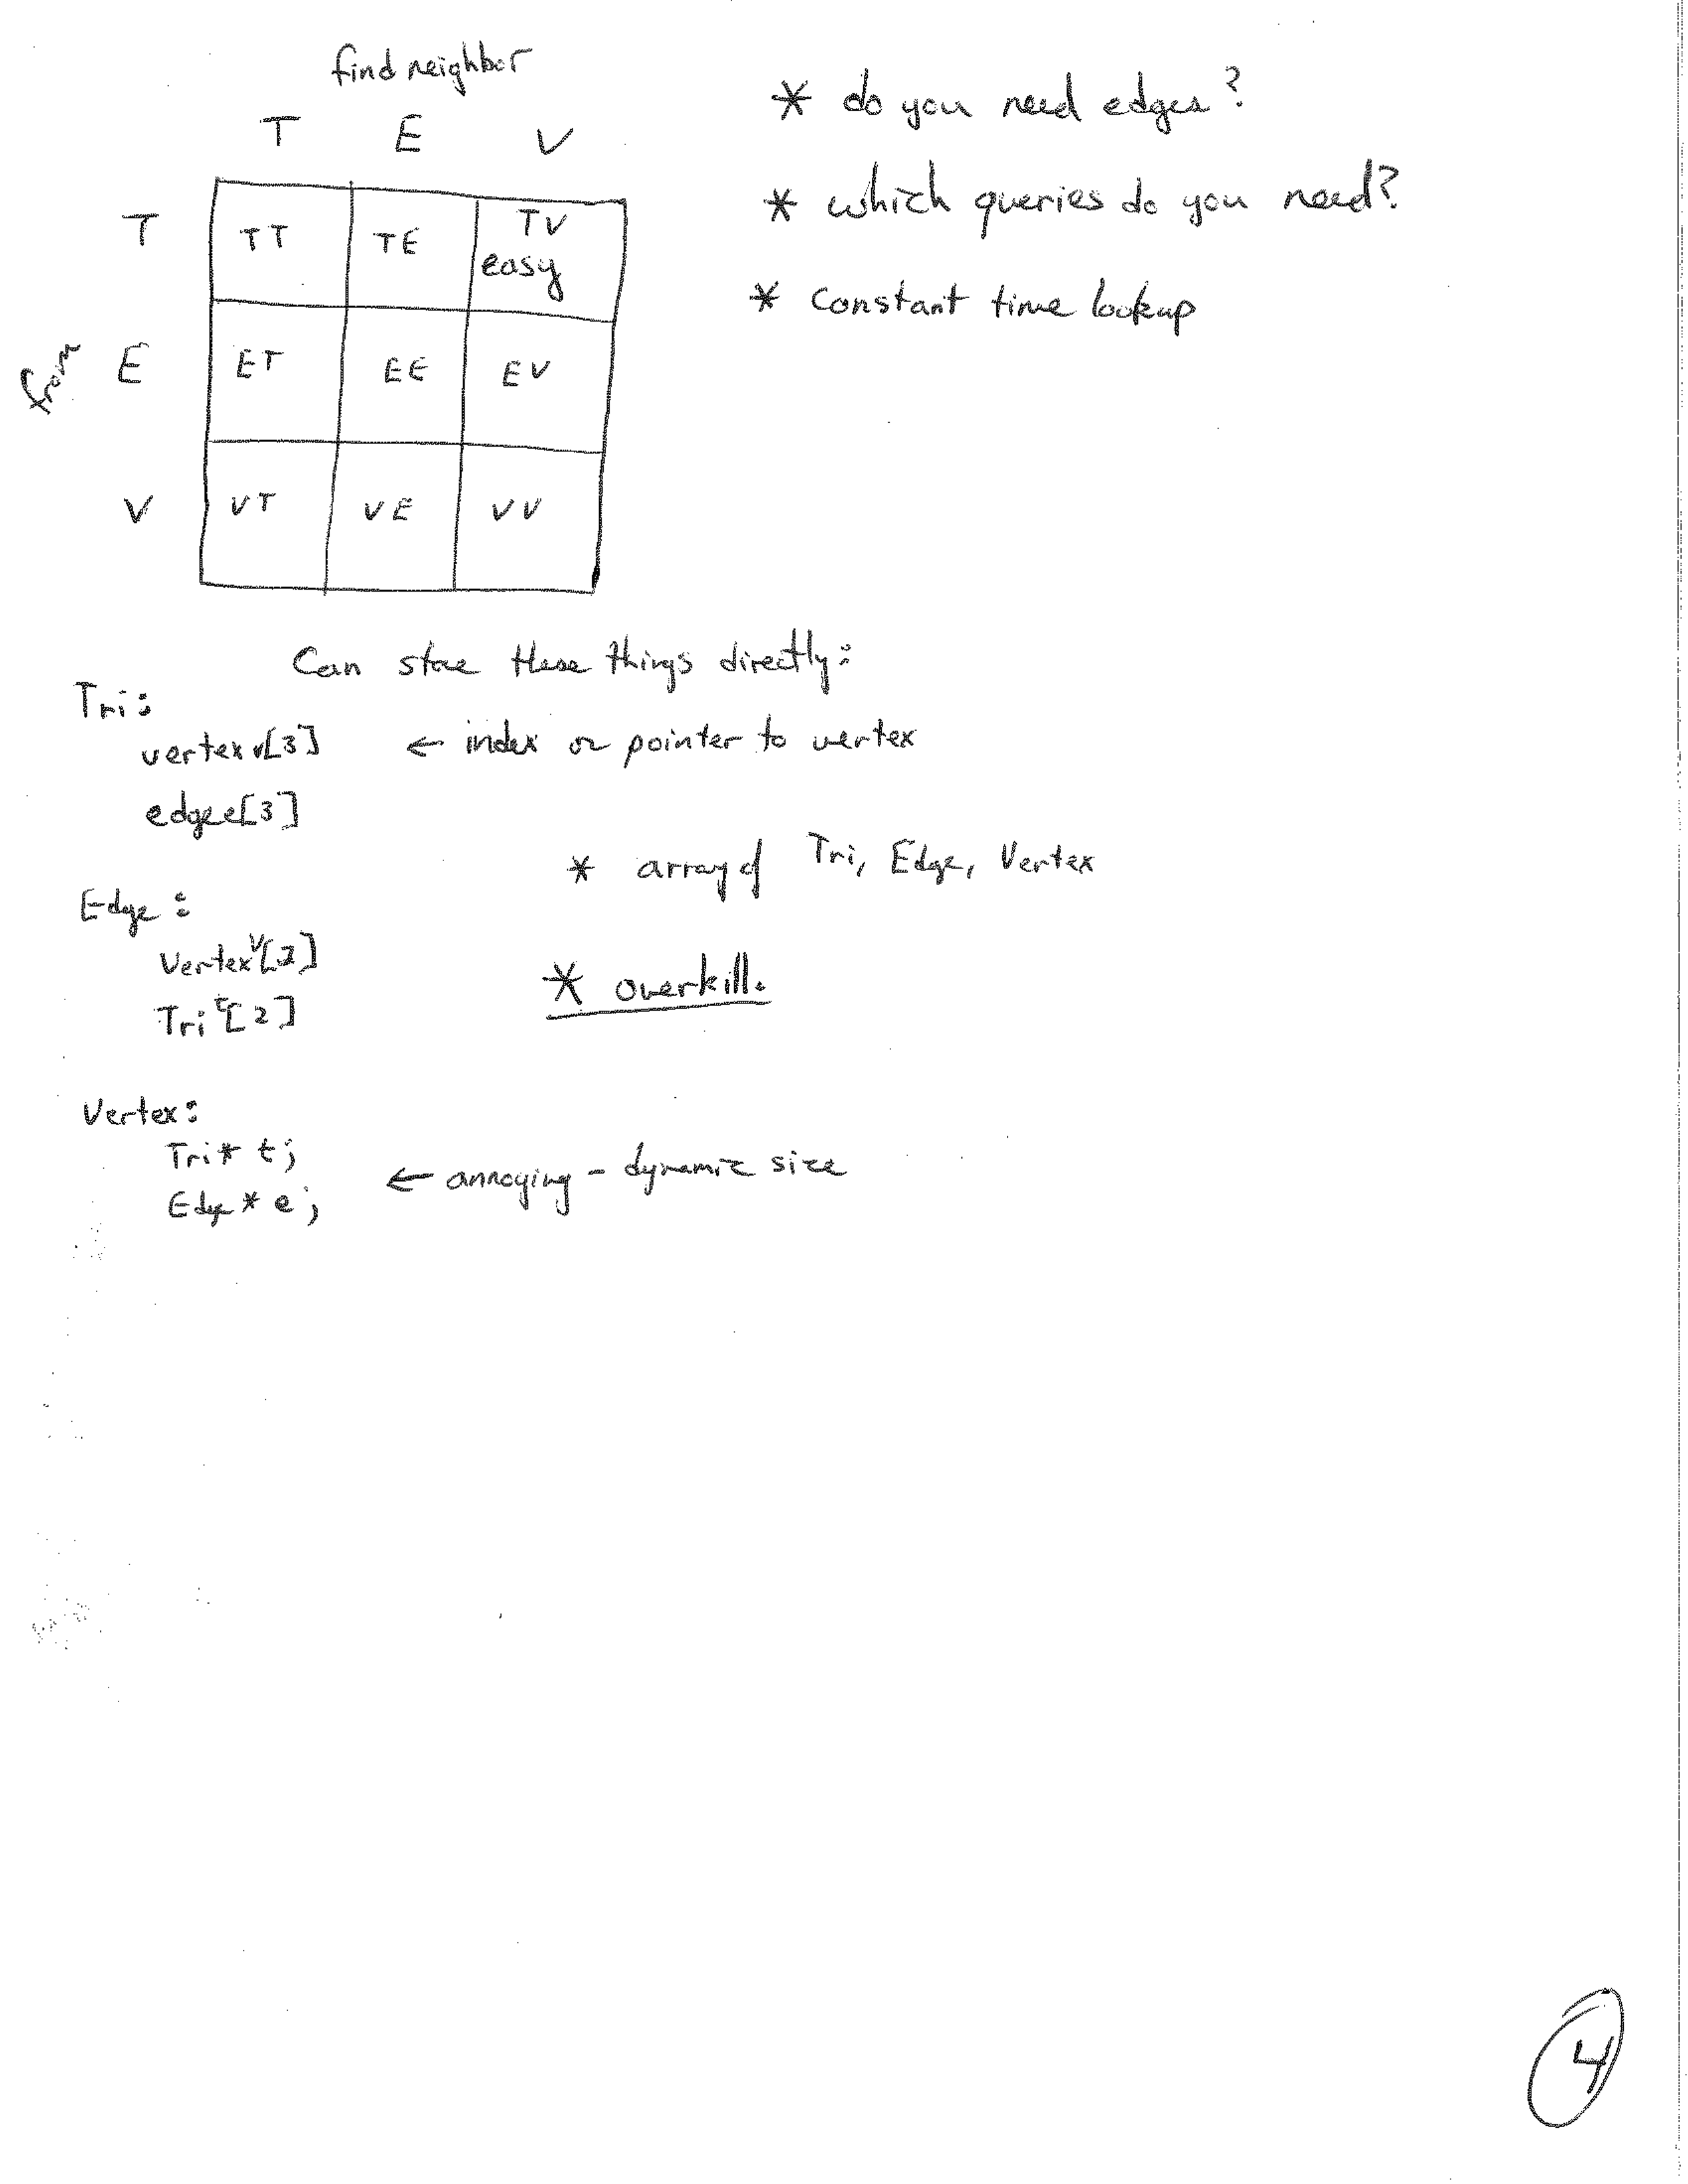 find neighbor
T E V
T TT TE TV easy
from E ET EE EV
V VT VE VV
* do you need edges?
* which queries do you need?
* constant time lookup
Can store these things directly:
Tri:
vertex v[3] ← index or pointer to vertex
edge e[3]
* array of Tri, Edge, Vertex
Edge:
Vertex v[2]
Tri t[2]
* overkill.
Vertex:
Tri* t;
Edge* e;
← annoying - dynamic size
4